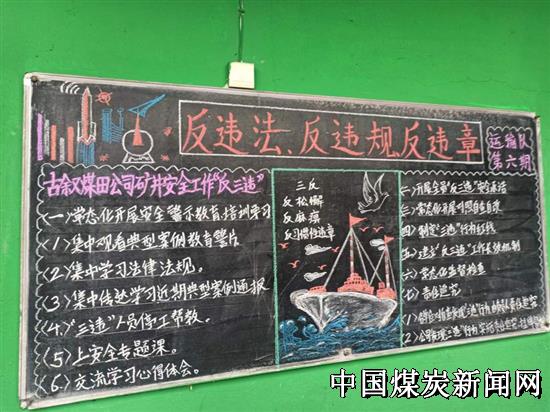 反违法、反违规反违章
运输队
第六期
古叙煤田公司矿井安全工作“反三违”
(一)常态化开展安全警示教育培训学习
(1)集中观看典型案例教育警片
(2)集中学习法律法规。
(3)集中传达学习近期典型案例通报
(4)“三违”人员停工帮教。
(5)上安全专题课。
(6)交流学习心得体会。
三反
反松懈
反麻痹
反习惯性违章
(二)开展全员“反三违”
(三)常态化开展
(四)制定“三违”行为红线
(五)建立“反三违”工作长效机制
(六)常态化监督检查
(七)责任追究
中国煤炭新闻网